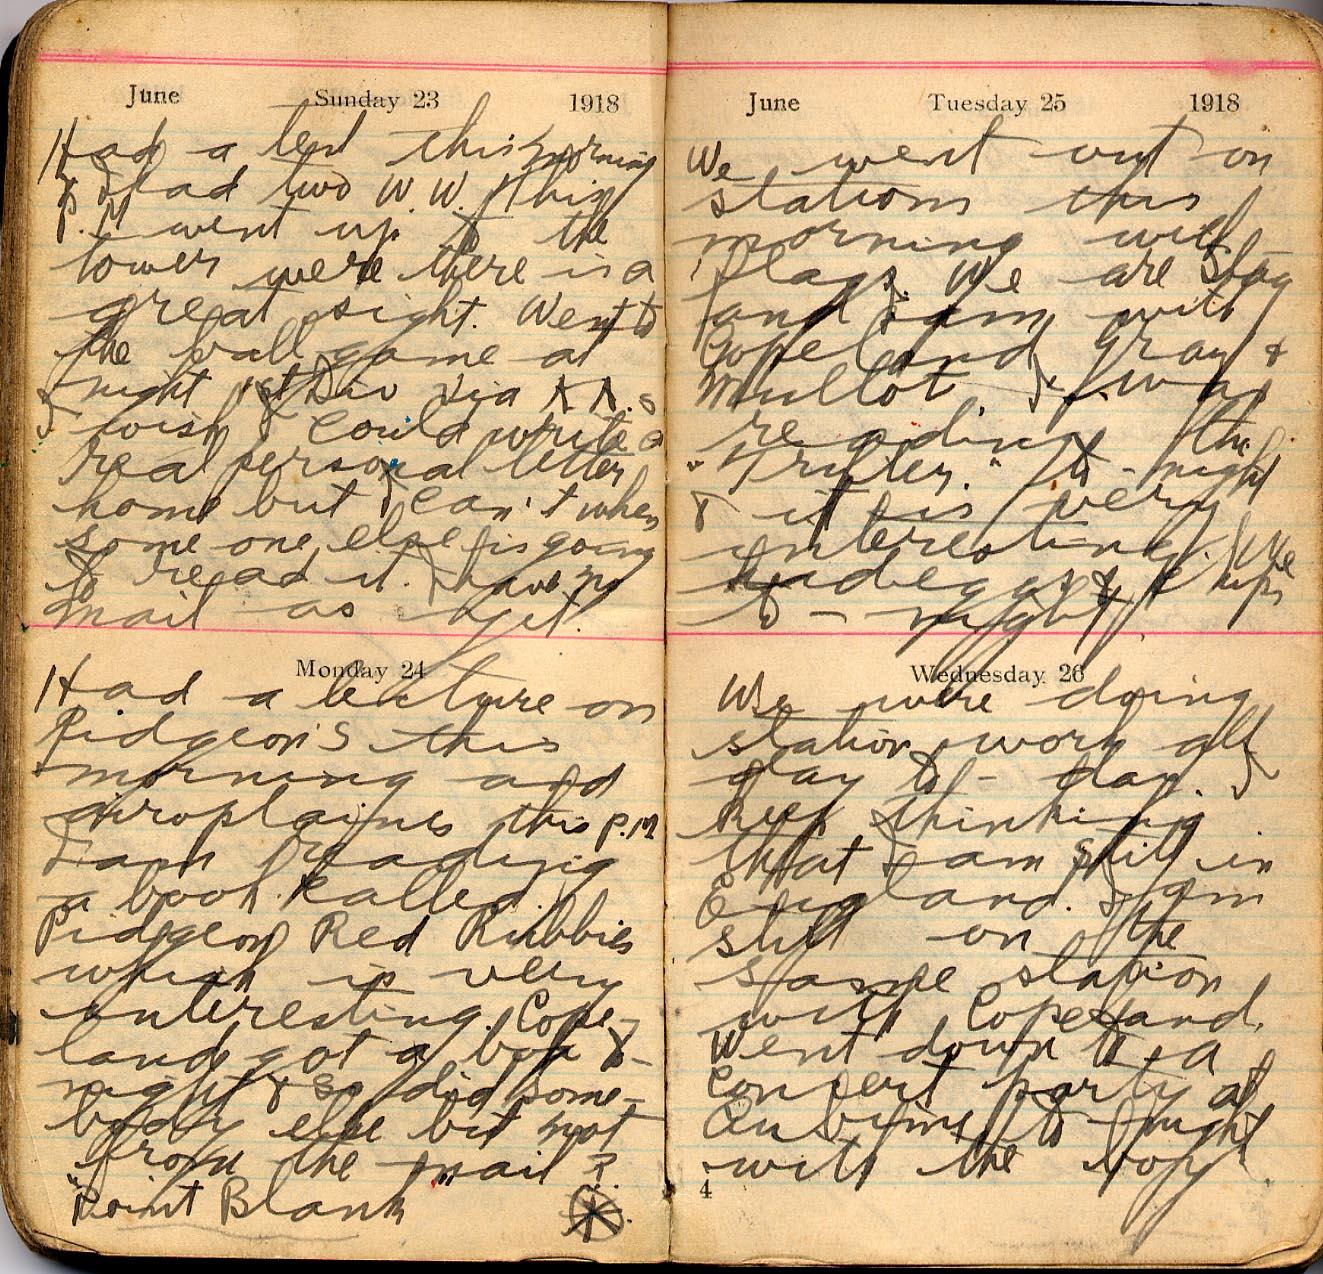 June Sunday 23 1918
Had a test this morning
& had two W.W. this
P.M I went up to the
tower were there is a
great sight. Went to
the ball game at
night 1st Div via
wish I could write a
real personal letter
home but I can't when
some one else is going
to read it. I have no
mail as yet.
Monday 24
Had a lecture on
Pidgeon's this
morning and
airoplaines this P.M
I am reading
a book called.
Pidgeon Red Rubbies
which is very
interesting. Cope-
land got a box to-
night & so did some-
body else but not
from the mail ?.
"Point Blank"
June Tuesday 25 1918
We went out on
stations this
morning with
flags. We are Stag
and I am with
Copeland Gray &
Mullot. I was
reading the
"Trifler." To-night
& it is very
interesting. We
had eggs & chips
to-night.
Wednesday 26
We were doing
station work all
day to-day. I
keep thinking
that I am still in
England. I am
still on the
same station
with Copeland.
Went down to a
concert party at
to-night
with the boys.
4